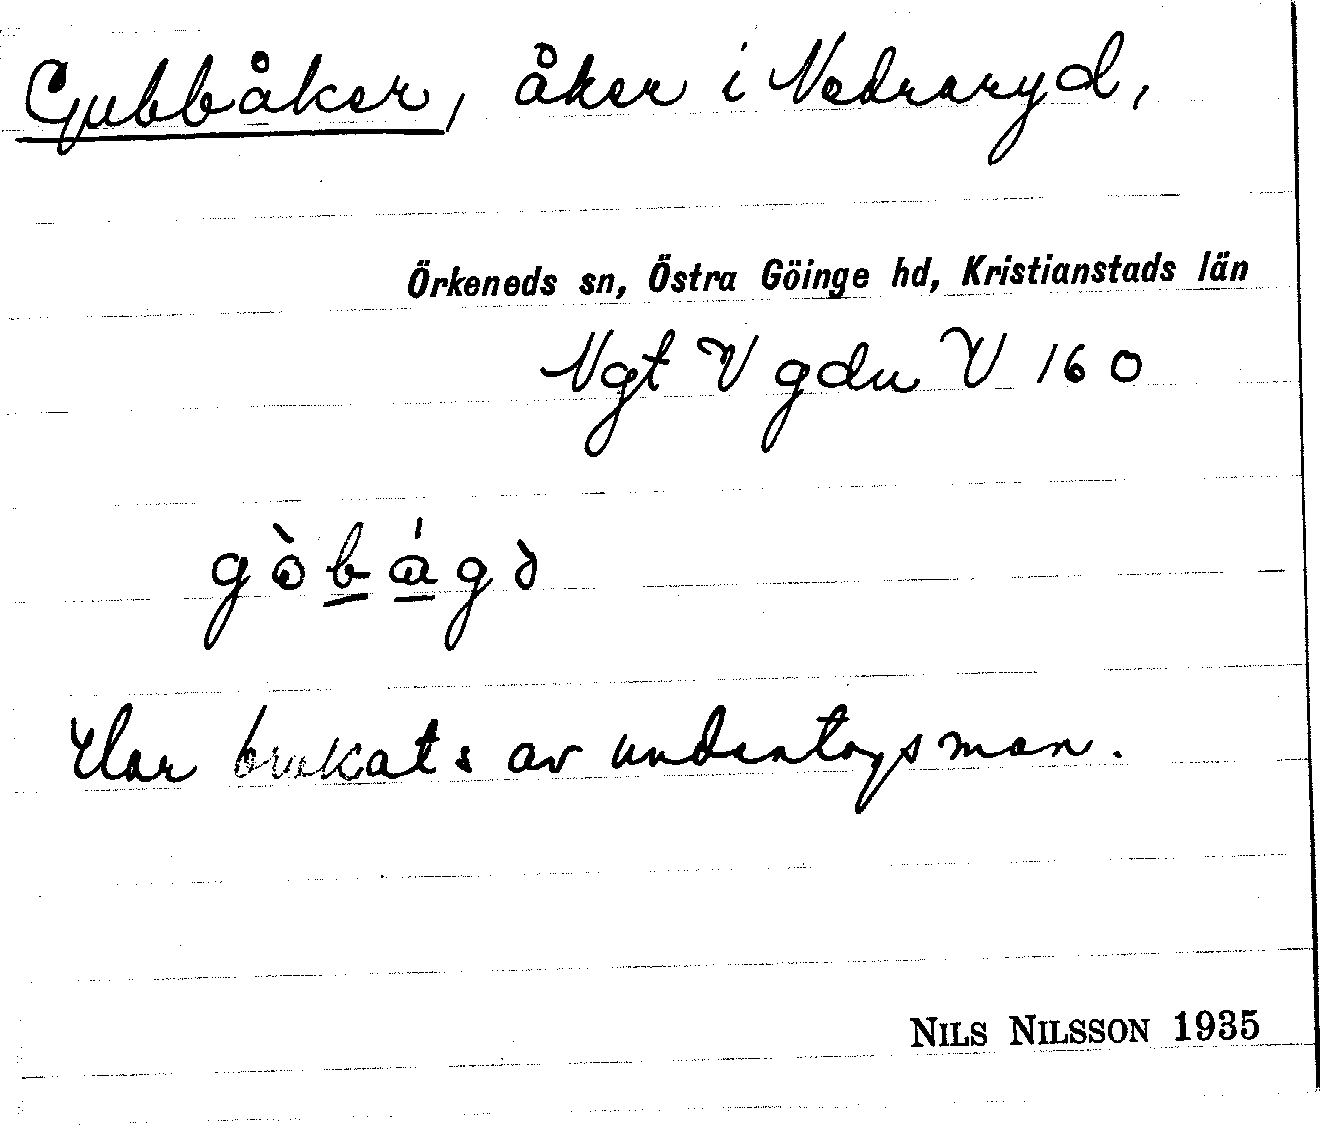 Gubbåker, åker i Nedraryd,
Örkeneds sn, Östra Göinge hd, Kristianstads län
Ngt V gdn V 160
gòbágð
Har brukats av undantagsman.
NILS NILSSON 1935